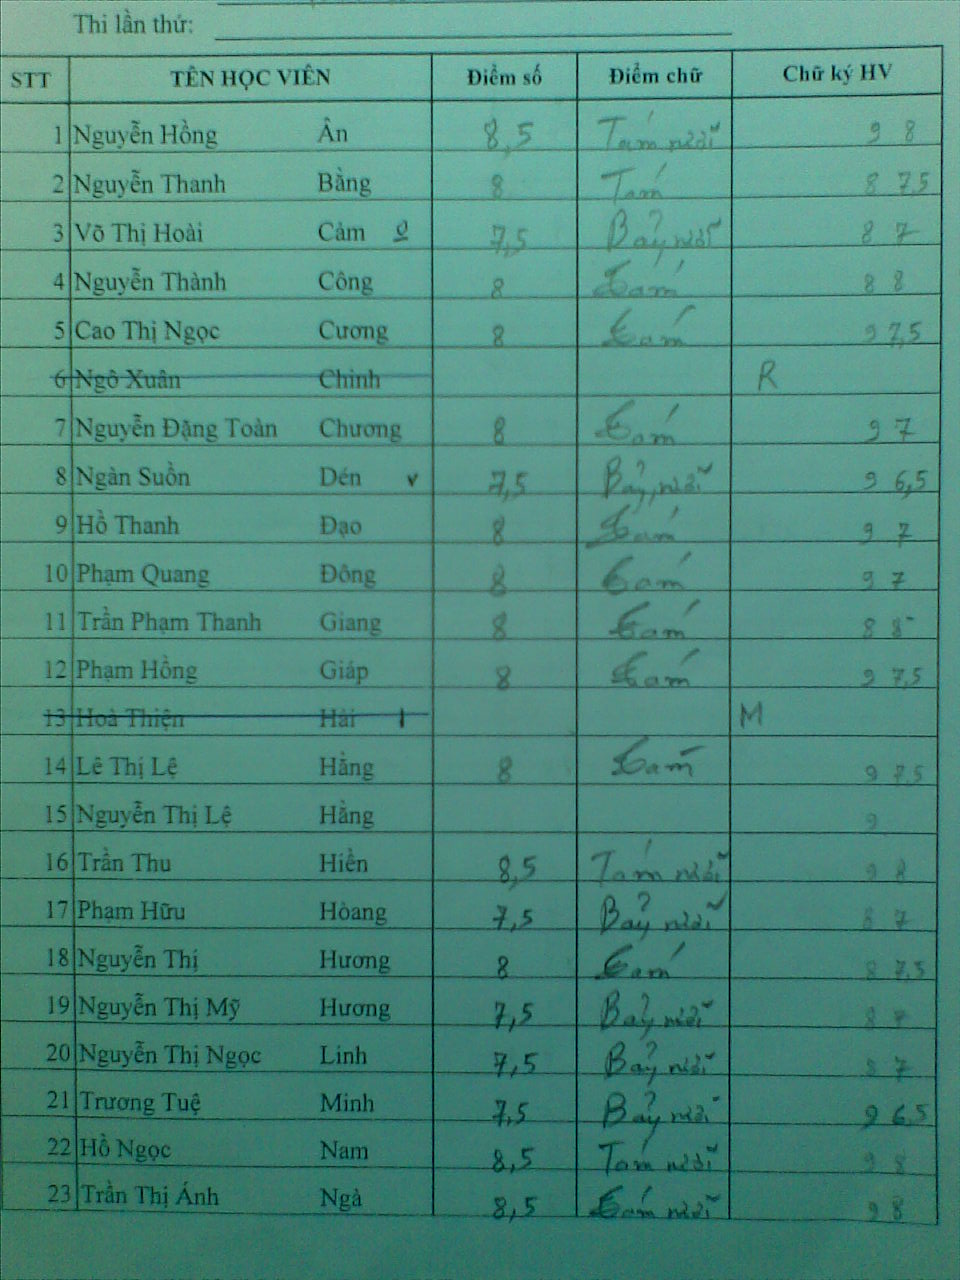 Thi lần thứ:
STT TÊN HỌC VIÊN Điểm số Điểm chữ Chữ ký HV
1 Nguyễn Hồng Ân 8,5 Tám rưỡi 9 8
2 Nguyễn Thanh Bằng 8 Tám 8 7,5
3 Võ Thị Hoài Cảm 7,5 Bảy rưỡi 8 7
4 Nguyễn Thành Công 8 Tám 8 8
5 Cao Thị Ngọc Cương 8 Tám 9 7,5
6 Ngô Xuân Chinh R
7 Nguyễn Đặng Toàn Chương 8 Tám 9 7
8 Ngàn Suồn Dén v 7,5 Bảy rưỡi 9 6,5
9 Hồ Thanh Đạo 8 Tám 9 7
10 Phạm Quang Đông 8 Tám 9 7
11 Trần Phạm Thanh Giang 8 Tám 8 8
12 Phạm Hồng Giáp 8 Tám 9 7,5
13 Hoà Thiện Hải M
14 Lê Thị Lệ Hằng 8 Tám 9 7,5
15 Nguyễn Thị Lệ Hằng 9
16 Trần Thu Hiền 8,5 Tám rưỡi 9 8
17 Phạm Hữu Hòang 7,5 Bảy rưỡi 8 7
18 Nguyễn Thị Hương 8 Tám 8 7,5
19 Nguyễn Thị Mỹ Hương 7,5 Bảy rưỡi 8 7
20 Nguyễn Thị Ngọc Linh 7,5 Bảy rưỡi 8 7
21 Trương Tuệ Minh 7,5 Bảy rưỡi 9 6,5
22 Hồ Ngọc Nam 8,5 Tám rưỡi 9 8
23 Trần Thị Ánh Ngà 8,5 Tám rưỡi 9 8